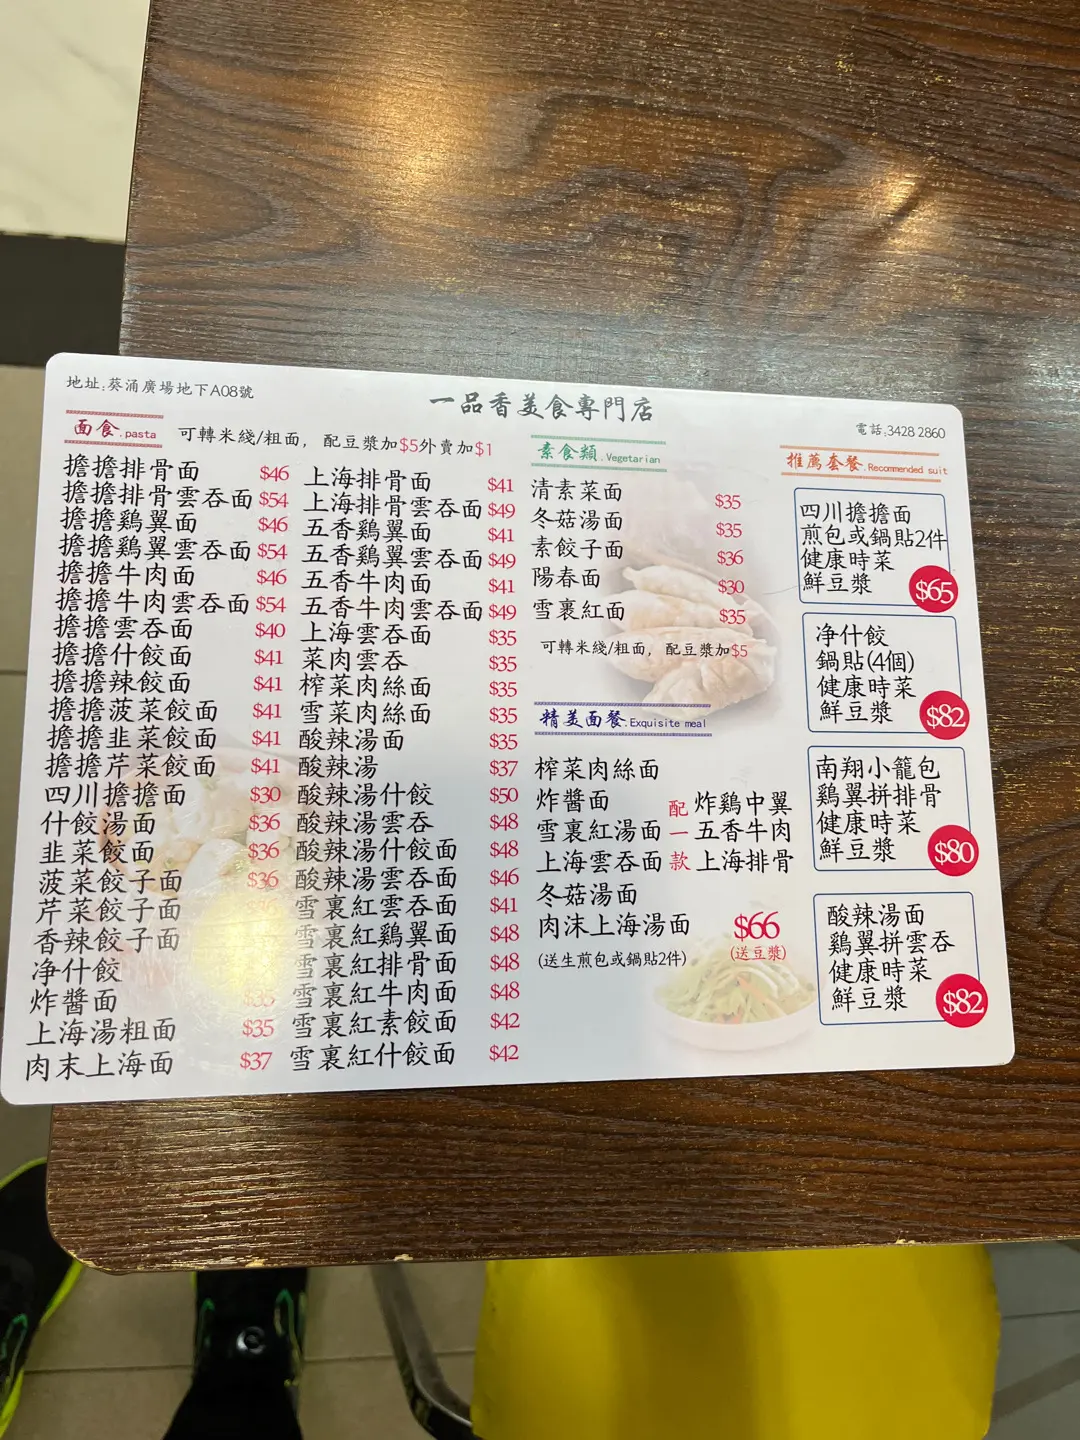 地址:葵涌廣場地下A08號
一品香美食專門店
電話:3428 2860
面食.pasta
可轉米綫/粗面，配豆漿加$5外賣加$1
擔擔排骨面 $46
擔擔排骨雲吞面 $54
擔擔鷄翼面 $46
擔擔鷄翼雲吞面 $54
擔擔牛肉面 $46
擔擔牛肉雲吞面 $54
擔擔雲吞面 $40
擔擔什餃面 $41
擔擔辣餃面 $41
擔擔菠菜餃面 $41
擔擔韭菜餃面 $41
擔擔芹菜餃面 $41
四川擔擔面 $30
什餃湯面 $36
韭菜餃面 $36
菠菜餃子面 $36
芹菜餃子面
香辣餃子面
净什餃
炸醬面
上海湯粗面 $35
肉末上海面 $37
上海排骨面 $41
上海排骨雲吞面 $49
五香鷄翼面 $41
五香鷄翼雲吞面 $49
五香牛肉面 $41
五香牛肉雲吞面 $49
上海雲吞面 $35
菜肉雲吞 $35
榨菜肉絲面 $35
雪菜肉絲面 $35
酸辣湯面 $35
酸辣湯 $37
酸辣湯什餃 $50
酸辣湯雲吞 $48
酸辣湯什餃面 $48
酸辣湯雲吞面 $46
雪裏紅雲吞面 $41
雪裏紅鷄翼面 $48
雪裏紅排骨面 $48
雪裏紅牛肉面 $48
雪裏紅素餃面 $42
雪裏紅什餃面 $42
素食類.Vegetarian
清素菜面 $35
冬菇湯面 $35
素餃子面 $36
陽春面 $30
雪裏紅面 $35
可轉米綫/粗面，配豆漿加$5
精美面餐.Exquisite meal
榨菜肉絲面
炸醬面
雪裏紅湯面
上海雲吞面
冬菇湯面
肉沫上海湯面
(送生煎包或鍋貼2件)
配一款
炸鷄中翼
五香牛肉
上海排骨
$66
(送豆漿)
推薦套餐.Recommended suit
四川擔擔面
煎包或鍋貼2件
健康時菜
鮮豆漿
$65
净什餃
鍋貼(4個)
健康時菜
鮮豆漿
$82
南翔小籠包
鷄翼拼排骨
健康時菜
鮮豆漿
$80
酸辣湯面
鷄翼拼雲吞
健康時菜
鮮豆漿
$82